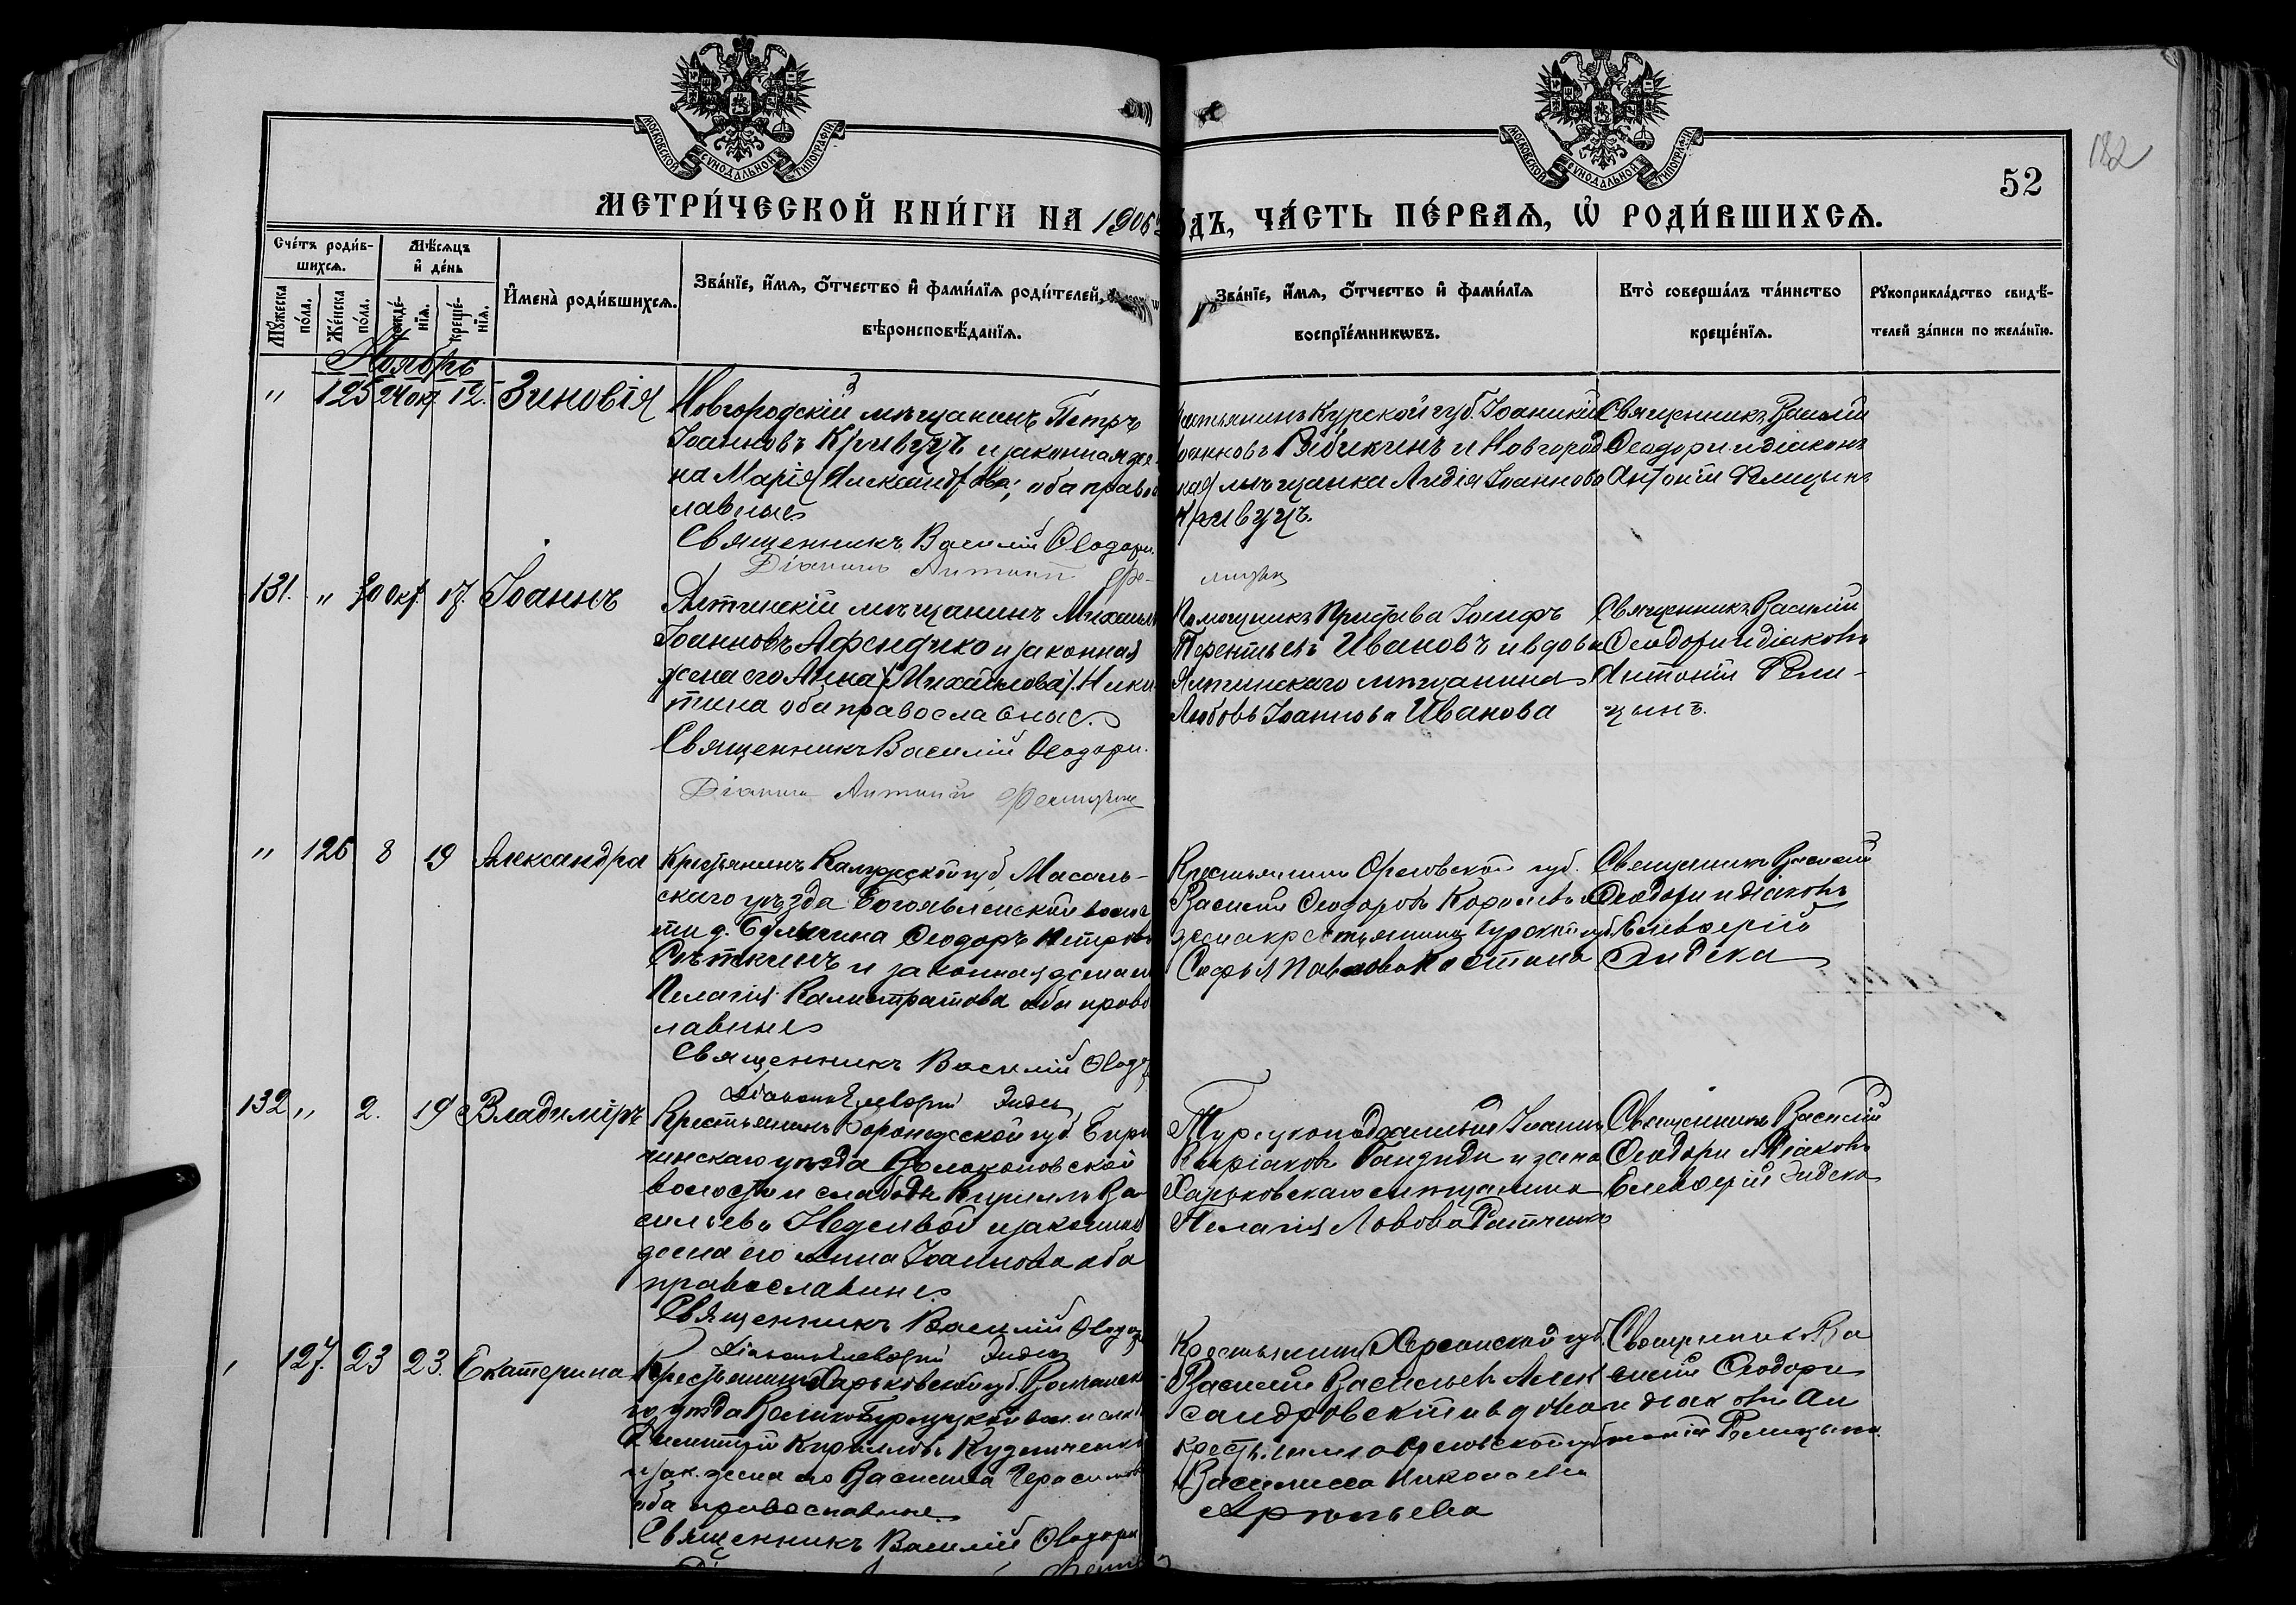 МОСКОВСКОЙ СѴНОДАЛЬНОЙ ТИПОГРАФІИ
МОСКОВСКОЙ СѴНОДАЛЬНОЙ ТИПОГРАФІИ
182
52
МЕТРИ́ЧЕСКОЙ КНИ́ГИ НА 1906
ДЪ, ЧА́СТЬ ПЕ́РВАѦ, Ѡ҆ РОДИ́ВШИХСѦ.
Сче́тъ роди́в-
шихсѧ.
Мѣ́сѧцъ
и҆ де́нь
Мꙋ́жеска
по́ла.
Же́нска
по́ла.
рожде́-
нїѧ.
креще́-
нїѧ.
И҆мена̀ роди́вшихсѧ.
Зва́нїе, и҆́мѧ, ѻ҆́тчество и҆ фами́лїѧ роди́телей,
вѣроисповѣ́данїѧ.
Зва́нїе, и҆́мѧ, ѻ҆́тчество и҆ фами́лїѧ
воспрїе́мникѡвъ.
Кто̀ соверша́лъ та́инство
креще́нїѧ.
Рꙋкоприкла́дство свидѣ́-
телей за́писи по жела́нїю.
Ноябрь
" 125 24 окт. 12. Зиновія
Новгородскій мѣщанинъ Петръ
Іоанновъ Кривущъ и законная же-
на Марія Александрова; оба право
лавные
Священникъ Василій Ѳеодори.
Діаконъ Антоній
Курской губ. Іоанникій
Рябикинъ и Новгород
мѣщанка Лидія Іоаннова
Кривущъ.
Священникъ Василій
Ѳеодори и діаконъ
Антоній Фелицынъ
131. " 30 Окт. 17. Іоаннъ
Ялтинскій мѣщанинъ Михаилъ
Іоанновъ Афендико и законная
жена его Анна (Михайлова) Ники
тина оба православные.
Священникъ Василій Ѳеодори.
Діаконъ Антоній Фелицынъ
Помощникъ Пристава Іосифъ
Терентьевъ Ивановъ и вдова
Ялтинскаго мѣщанина
Любовь Іоаннова Иванова
Священникъ Василій
Ѳеодори и діаконъ
Антоній Фели-
цынъ.
" 126 8 19 Александра
Крестьянинъ Калужской губ. Масаль-
скаго уѣзда Богоявленской волос
ти д. Ѳеодоръ Петровъ
и законная жена его
Пелагія Калистратова оба право
лавные
Священникъ Василій Ѳеодори
Діаконъ Елевѳерій Эндека
Крестьянинъ Орловской губ.
Василій Ѳеодоровъ Королевъ и
жена крестьянина Курской губ.
Софья Павлова Костина
Священникъ Василій
Ѳеодори и діаконъ
Елевѳерій
Эндека
132 " 2. 19 Владиміръ
Крестьянинъ Воронежской губ. Бирю
чинскаго уѣзда Волоконовской
волости и слободы Кириллъ Ва
сильевъ и законная
жена его Анна Іоаннова оба
православные
Священникъ Василій Ѳеодори
Діаконъ Елевѳерій Эндека
Турецкоподданный Іоаннъ
Киріаковъ и жена
Харьковскаго мѣщанина
Пелагія Львова
Священникъ Василій
Ѳеодори и діаконъ
Елевѳерій Эндека
127. 23 23. Екатерина
Крестьянинъ Харьковской губ. Волчанска
го уѣзда Велико-Бурлуцкой вол. и слоб.
Димитрій Кирилловъ Кузьмиченко
и зак. жена его Василиса Герасимова
оба православные
Священникъ Василій Ѳеодори
Крестьянинъ Херсонской губ.
Василій Васильевъ Алек
сандровскій и вдова
крестьянина Орловской губ.
Василисса Николаева
Арютьева
Священникъ Ва
силій Ѳеодори
и діаконъ Ан
тоній Фелицынъ.